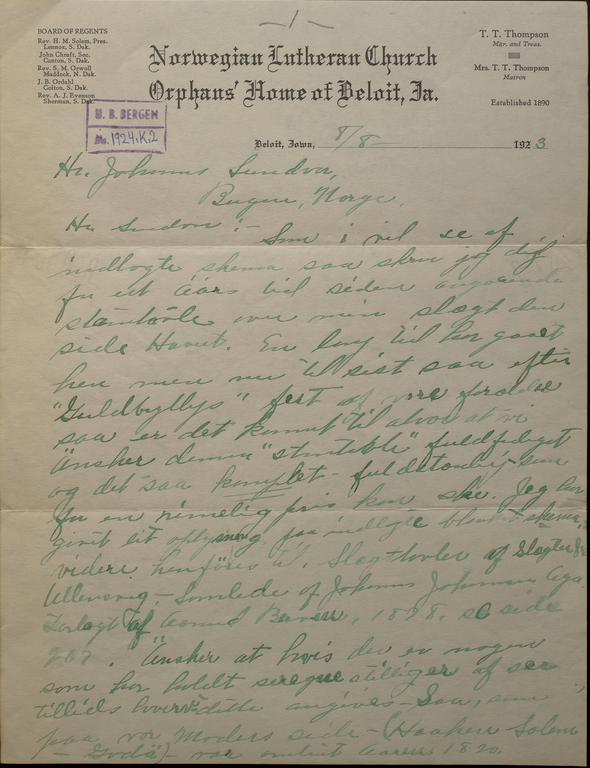 - 1 -
BOARD OF REGENTS
Rev. H. M. Solem, Pres.
Lennox, S. Dak.
John Ghraft, Sec.
Canton, S. Dak.
Rev. S. M. Orwoll
Maddock, N. Dak.
J. B. Ordahl
Colton, S. Dak.
Rev. A. J. Evenson
Sherman, S. Dak.
Norwegian Lutheran Church
Orphans' Home of Beloit, Ia.
T. T. Thompson
Mgr. and Treas.
Mrs. T. T. Thompson
Matron
Established 1890
U. B. BERGEN
No. 1924.K.2
Beloit, Iowa, 8/8 1923
Hr. Johannes
Norge.
Hr.
Som i vil se af
indlagte skema saa skrev jeg dig
for et Aars tid siden angaaende
stamtavle over min slægt den
side Havet. En lang tid har gaaet
hen men nu til sist saa efter
"Guldbryllyps" fest af vore forældre
saa er det kommet til alvor at vi
Ønsker denne "stamtavle" fuldfølget
og det saa komplet - fuldstændig som
for en rimelig pris kan ske. Jeg har
givet lit oplysning paa indlagte blanket skema,
videre henføres til. Slægttavler af Slægter fra
Ullensvang - Samlede af Johannes Johannesen Aga
Forlagt af 1898. se side
267. Ønsker at hvis der er nogen
som har holdt stilliger af
tillids dette angives - Saa, som
paa vor Moders side - (Haaken Solem
- ) - var omkrint Aaren 1820.